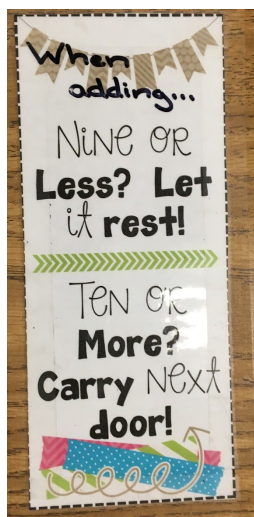 When
adding...
NiNe OR
Less? Let
it rest!
TeN OR
More?
Carry Next
door!